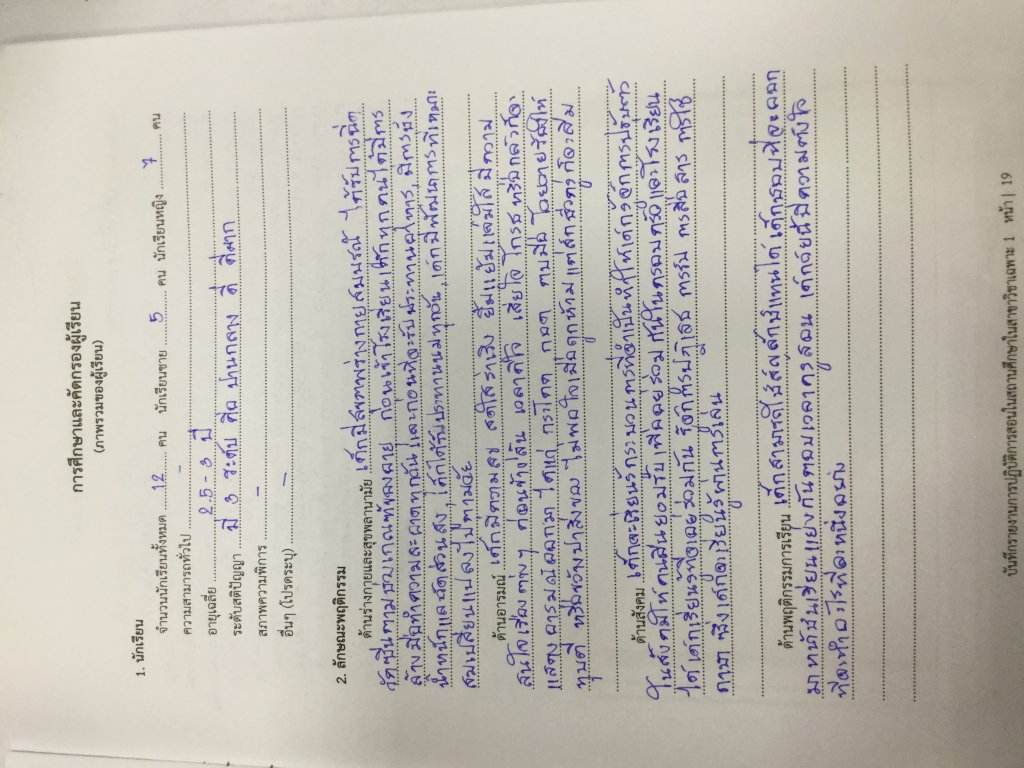 การศึกษาและคัดกรองผู้เรียน
(ภาพรวมของผู้เรียน)
1. นักเรียน
จำนวนนักเรียนทั้งหมด 12 คน นักเรียนชาย 5 คน นักเรียนหญิง 7 คน
ความสามารถทั่วไป -
อายุเฉลี่ย 2.5 - 3 ปี
ระดับสติปัญญา มี 3 ระดับ คือ ปานกลาง ดี ดีมาก
สภาพความพิการ -
อื่นๆ (โปรดระบุ) -
2. ลักษณะพฤติกรรม
ด้านร่างกายและสุขพลานามัย เด็กมีสภาพร่างกายสมบูรณ์ ได้รับการฉีด
วัคซีนตามช่วงเกณฑ์ของอายุ ก่อนเข้าโรงเรียนเด็กทุกคนได้มีการ
ล้างมือทำความสะอาดทุกวันและก่อนที่จะรับประทานอาหาร, มีการชั่ง
น้ำหนักและวัดส่วนสูง, เด็กได้รับประทานนมทุกวัน, เด็กมีพัฒนาการที่เหมาะ
สมเปลี่ยนแปลงไปตามวัย
ด้านอารมณ์ เด็กมีความสุข สดใสร่าเริง ยิ้มแย้มแจ่มใส มีความ
สนใจเรื่องต่างๆ ค่อนข้างสั้น เวลาดีใจ เสียใจ โกรธ หรือกลัวก็จะ
แสดงอารมณ์ออกมา ได้แก่ กระโดด กอด ตบมือ โวยวายร้องไห้
ทุบตี หรือขว้างปาสิ่งของ ไม่พอใจเมื่อถูกห้าม แต่สักชั่วครู่ก็จะลืม
ด้านสังคม เด็กจะเรียนรู้กระบวนการที่จำเป็นทำให้เด็กรู้จักการปรับตัว
ในสังคมให้คนอื่นยอมรับ เพื่ออยู่ร่วมกันในครอบครัวและโรงเรียน
ได้ เด็กเรียนรู้ที่จะอยู่ร่วมกัน รู้จักการปฏิเสธ การรับ การสื่อสาร การใช้
ภาษา ซึ่งเด็กเกิดเรียนรู้ผ่านการเล่น
ด้านพฤติกรรมการเรียน เด็กสามารถใช้สัญลักษณ์แทนได้ เด็กชอบที่จะออก
มาหน้าชั้นเรียนแย่งกันตอบเวลาครูสอน เด็กวัยนี้มีความตั้งใจ
ที่จะทำอะไรที่ละหนึ่งอย่าง
บันทึกรายงานการปฏิบัติการสอนในสถานศึกษาในสาขาวิชาเฉพาะ 1 หน้า | 19